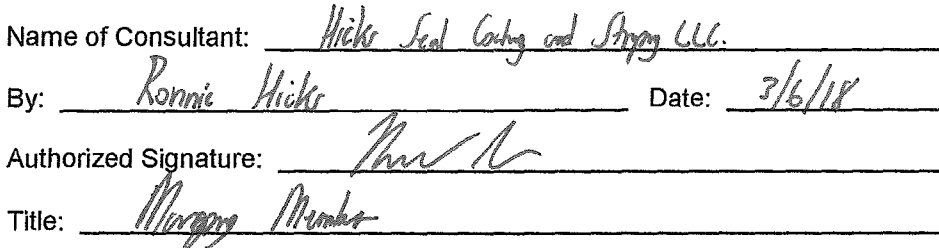 Name of Consultant: Hicks Seal Coating and Striping LLC.
By: Ronnie Hicks Date: 3/6/18
Authorized Signature:
Title: Managing Member